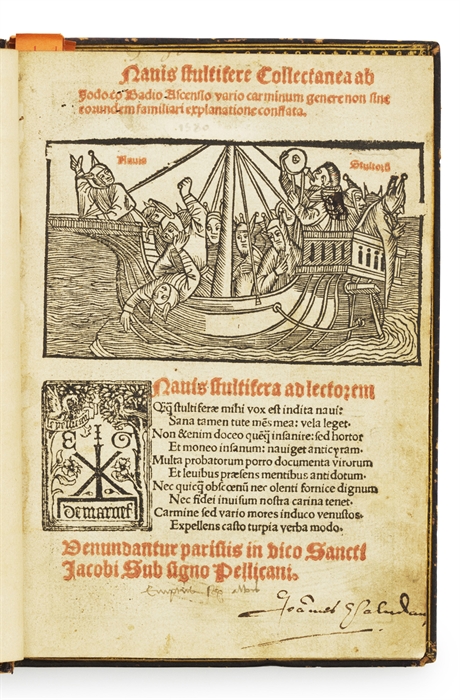 Nauis stultifere Collectanea ab
Jodoco Badio Ascensio vario carminum genere non sine
eorundem familiari explanatione conflata.
Nauis
Stultorū
Nauis stultifera ad lectorem
Qq̄ stultiferæ mihi vox est indita naui:
Sana tamen tute mēs mea: vela leget.
Non & enim doceo quēq̄ insanire: sed hortor
Et moneo insanum: nauiget anticyram.
Multa probatorum porro documenta virorum
Et leuibus præsens mentibus antidotum.
Nec quicq̄ obscœnū nec olenti fornice dignum
Nec fidei inuisum nostra carina tenet.
Carmine sed vario mores induco venustos.
Expellens casto turpia verba modo.
E G
De marnef
Venundantur parisiis in vico Sancti
Jacobi Sub signo Pellicani.